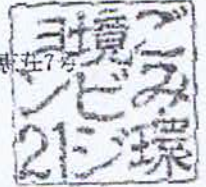 ごみ・環
境ビジ
ョン21